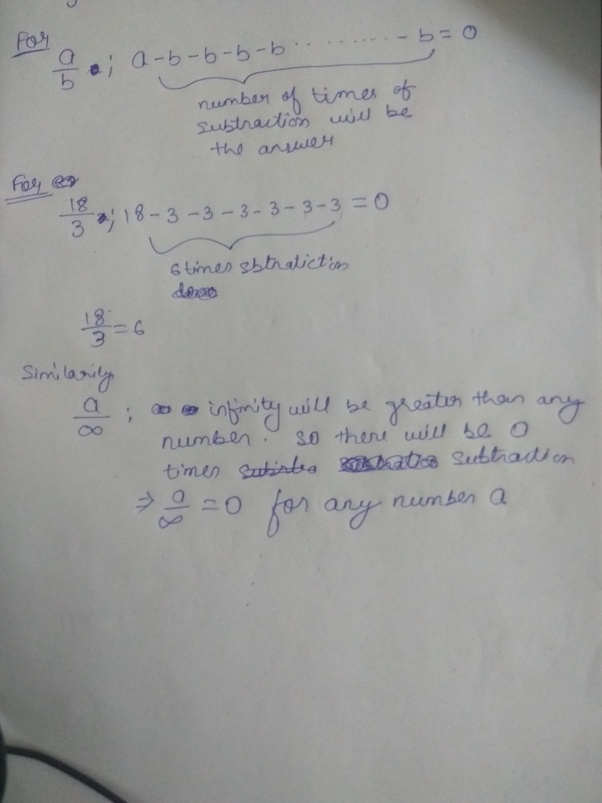 For
a/b ; a-b-b-b-b.......... - b = 0
number of times of
subtraction will be
the answer
For
18/3 ; 18-3-3-3-3-3-3 = 0
6 times sbtraliction
18/3 = 6
Similarily
a/∞ ; infinity will be greater than any
number. so there will be 0
times subtraction
⇒ a/∞ = 0 for any number a